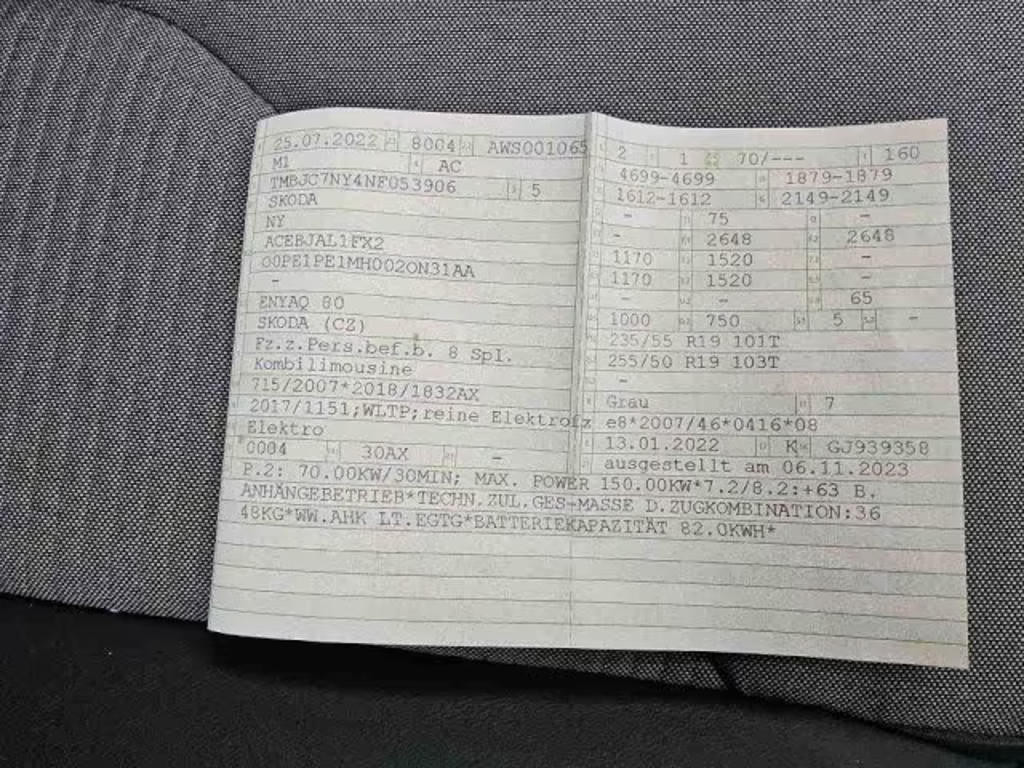 25.07.2022 8004 AWS001065
M1 AC
TMBJC7NY4NF053906 5
SKODA
NY
ACEBJAL1FX2
O0PE1PE1MH002ON31AA
-
ENYAQ 80
SKODA (CZ)
Fz.z.Pers.bef.b. 8 Spl.
Kombilimousine
715/2007*2018/1832AX
2017/1151;WLTP;reine Elektrofz
Elektro
0004 30AX -
2 1 70/--- 160
4699-4699 1879-1879
1612-1612 2149-2149
- 75 -
- 2648 2648
1170 1520 -
1170 1520 -
- - 65
1000 750 5 -
235/55 R19 101T
255/50 R19 103T
-
Grau 7
e8*2007/46*0416*08
13.01.2022 K GJ939358
ausgestellt am 06.11.2023
P.2: 70.00KW/30MIN; MAX. POWER 150.00KW*7.2/8.2:+63 B.
ANHÄNGEBETRIEB*TECHN.ZUL.GES-MASSE D.ZUGKOMBINATION:36
48KG*WW.AHK LT.EGTG*BATTERIEKAPAZITÄT 82.0KWH*